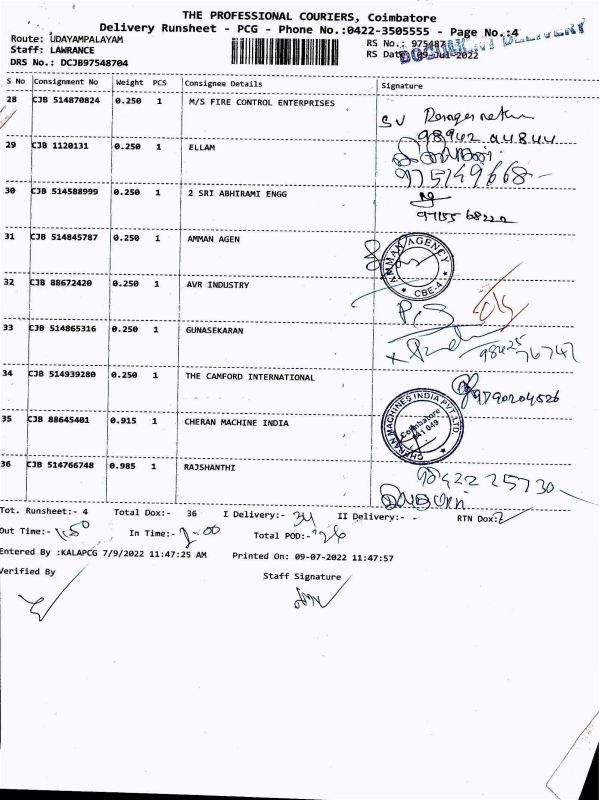 THE PROFESSIONAL COURIERS, Coimbatore
Delivery Runsheet - PCG - Phone No.:0422-3505555 - Page No.:4
Route: UDAYAMPALAYAM
Staff: LAWRANCE
DRS No.: DCJB97548704
RS No.: 975487
RS Date: 09-Jul-2022
DOCUMENT DELIVERY
S No Consignment No Weight PCS Consignee Details Signature
28 CJB 514870824 0.250 1 M/S FIRE CONTROL ENTERPRISES
98942
29 CJB 1120131 0.250 1 ELLAM
975149668-
30 CJB 514588999 0.250 1 2 SRI ABHIRAMI ENGG
31 CJB 514845787 0.250 1 AMMAN AGEN
AMMAN AGENCY
CBE-4
32 CJB 88672420 0.250 1 AVR INDUSTRY
33 CJB 514865316 0.250 1 GUNASEKARAN
98425 76747
34 CJB 514939280 0.250 1 THE CAMFORD INTERNATIONAL
9790204526
35 CJB 88645401 0.915 1 CHERAN MACHINE INDIA
CHERAN MACHINES INDIA PVT.LTD
Coimbatore
641 049
36 CJB 514766748 0.985 1 RAJSHANTHI
98422 25730-
Tot. Runsheet:- 4 Total Dox:- 36 I Delivery:- 34 II Delivery:- - RTN Dox:- 2
Out Time:- 1.50 In Time:- Total POD:- 26
Entered By :KALAPCG 7/9/2022 11:47:25 AM Printed On: 09-07-2022 11:47:57
Verified By
Staff Signature